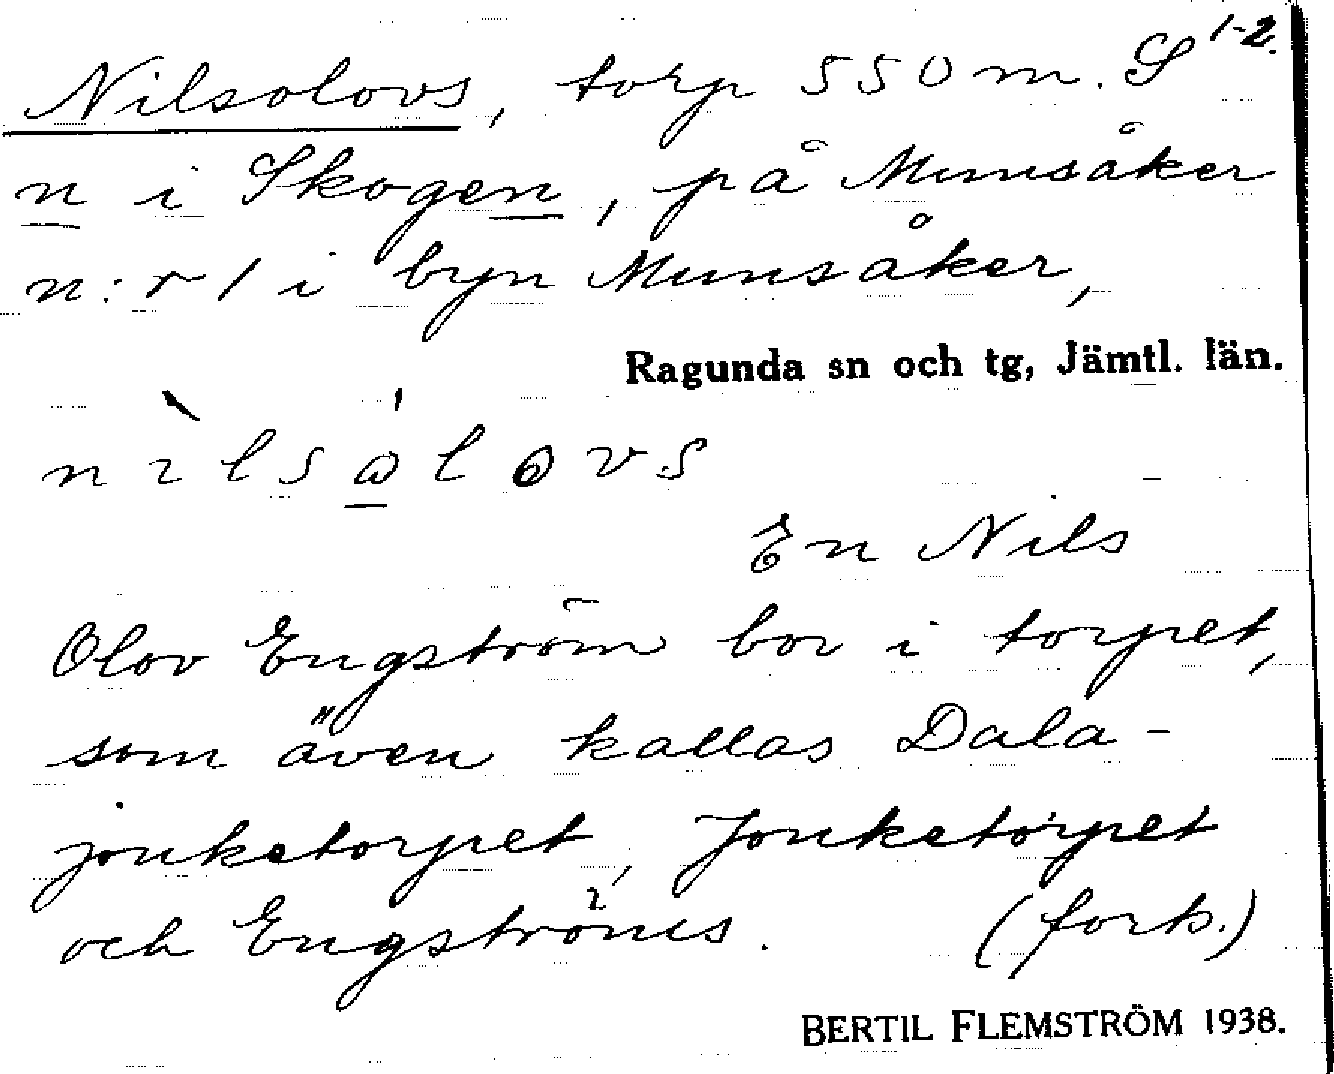 1-2.
Nilsolovs, torp 550 m. S
n i Skogen, på Munsåker
n:r 1 i byn Munsåker,
Ragunda sn och tg, Jämtl. län.
nìlsólovs
En Nils
Olov Engström bor i torpet,
som även kallas Dala-
jonketorpet, Jonketorpet
och Engströms. (forts.)
BERTIL FLEMSTRÖM 1938.